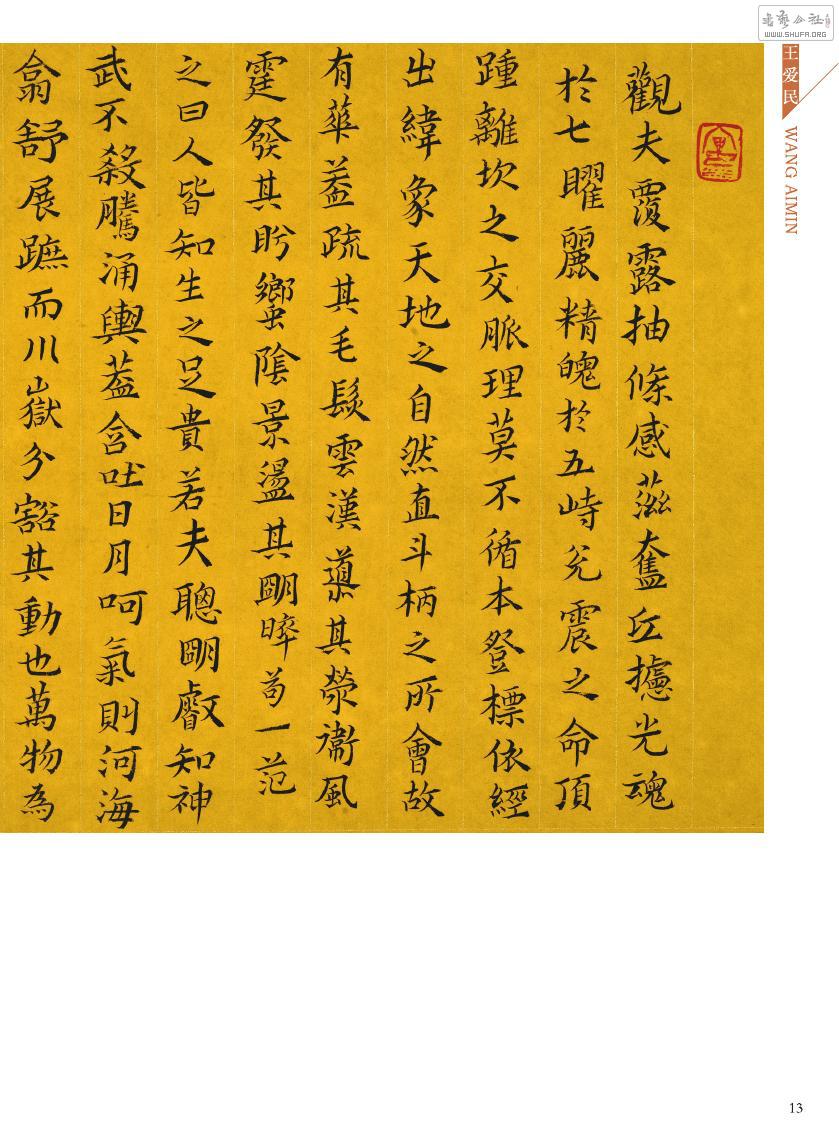 書藝公社
WWW.SHUFA.ORG
王爱民
WANG AIMIN
觀夫覆露抽條感蒞奮丘攄光魂
於七曜麗精魄於五峙兊震之命頂
踵離坎之交脈理莫不循本登標依經
出緯象天地之自然直斗柄之所會故
有華葢疏其毛髮雲漢導其滎衞風
霆發其肸蠁陰景盪其朙晬苟一范
之曰人皆知生之足貴若夫聰朙叡知神
武不殺騰涌輿葢含吐日月呵氣則河海
翕舒展蹠而川嶽分豁其動也萬物為
13